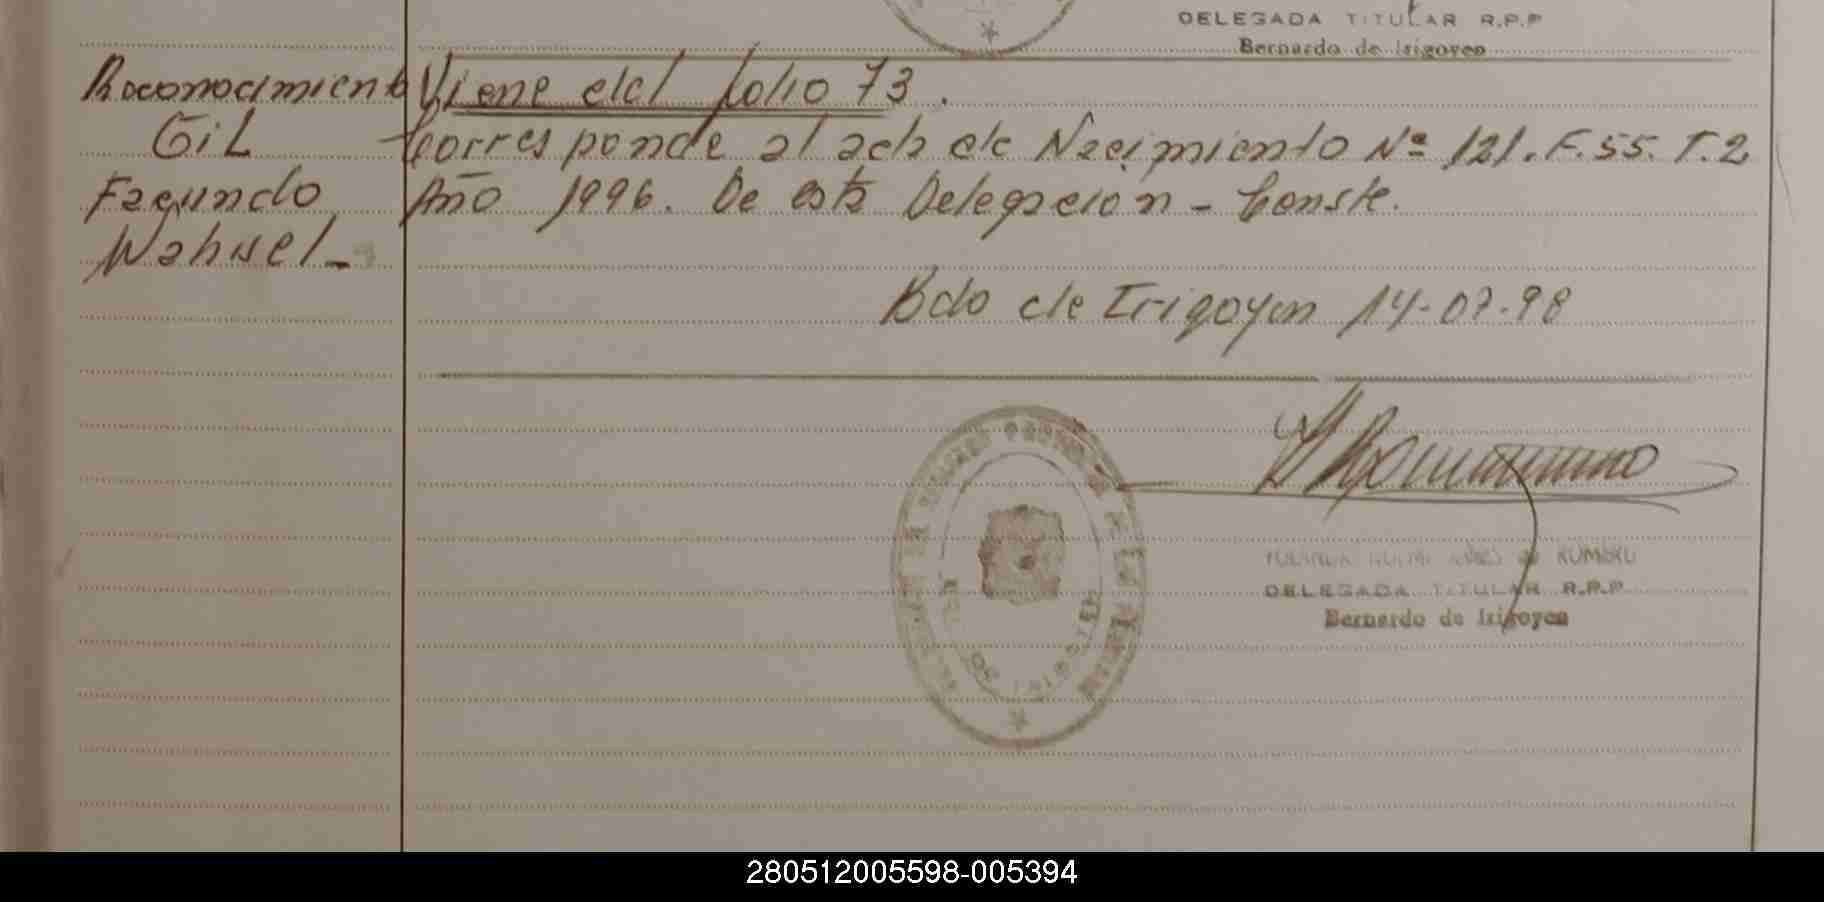 DELEGADA TITULAR R.P.P
Bernardo de Irigoyen
Reconocimiento
GiL
Facundo
Nahuel_
Viene del folio 73.
Corresponde al acta de Nacimiento Nº 121. F.55. T.2
Año 1996. De esta Delegación - Conste.
Bdo de Irigoyen 14-07-98
DELEGADA TITULAR R.P.P
Bernardo de Irigoyen
280512005598-005394